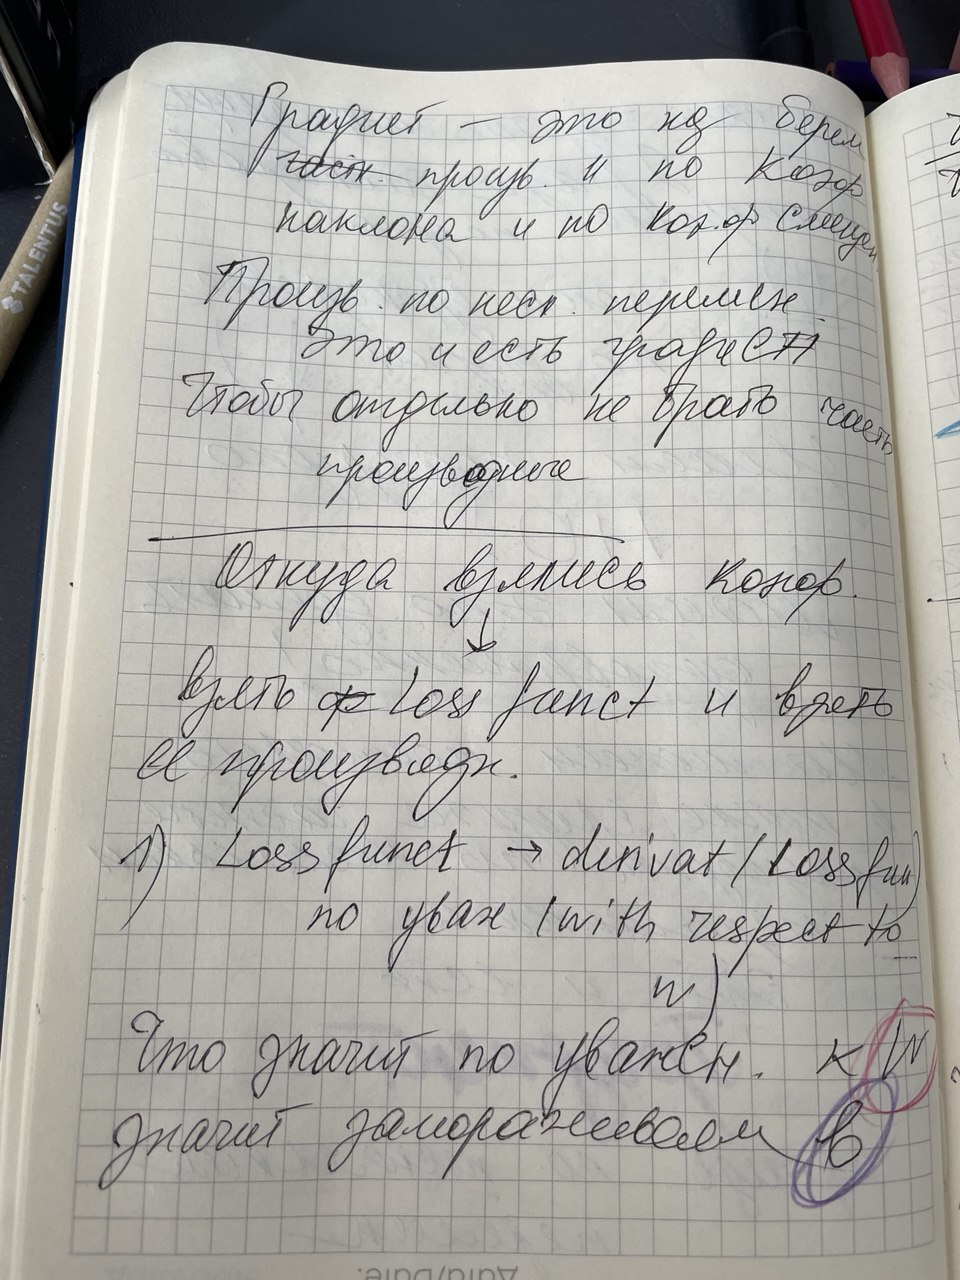 Градиет - это кд берем
частн. произв. и по Коэф
наклона и по коэф смещен
Произв. по неск. перемен.
Это и есть градиент
Чтобы отдельно не брать часть
производные
Откуда взялись коэф.
↓
взять ф Loss funct и взять
ее производн.
1) Loss funct → derivat (Loss fun)
по уваж (with respect to
w)
Что значит по уважен. к W
значит замораживаем b
TALENTUS
Дата/Date: